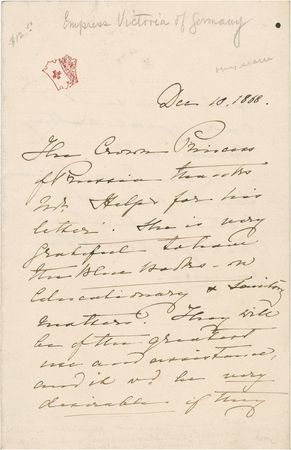 Empress Victoria of Germany
$12.50
Dec 10. 1868.
The Crown Princess
of Prussia thanks
Mr. Helps for his
letter. She is very
grateful to have
the Blue books - on
Educationary & Sanitary
matters. They will
be of the greatest
use and assistance,
and it wd. be very
desirable if they